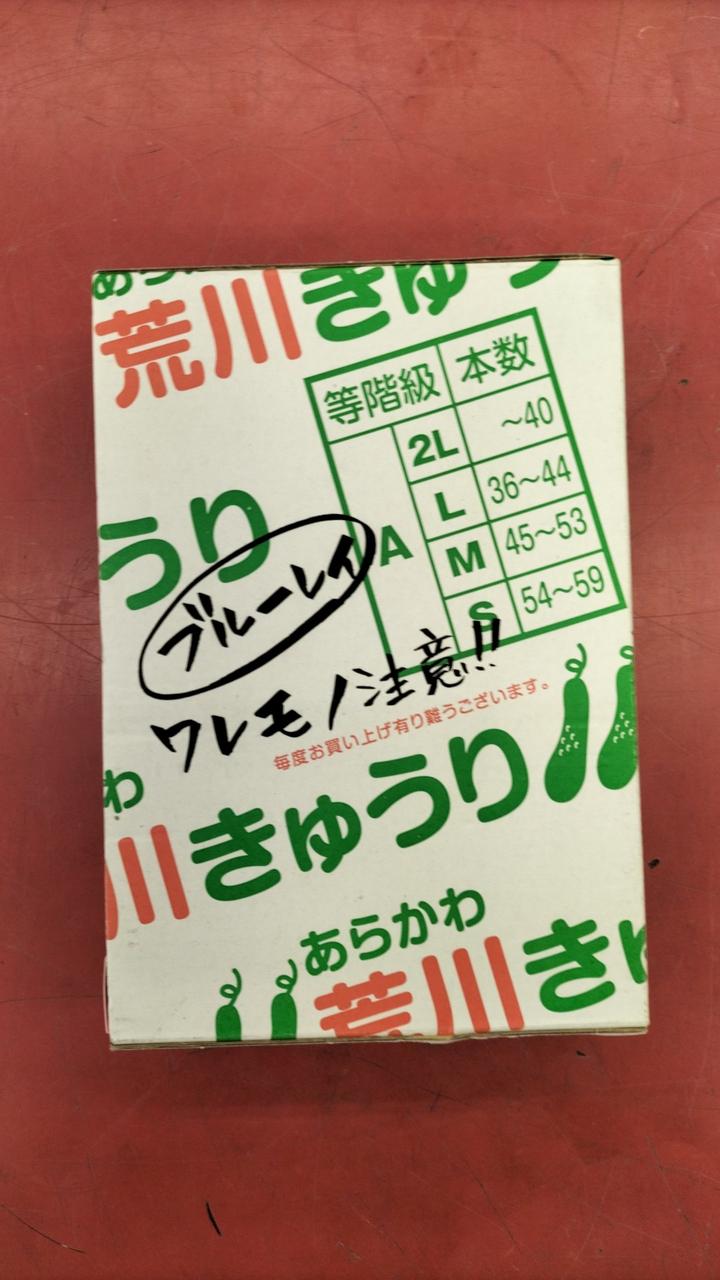 あら
荒川きゅう
等階級 本数
2L ～40
L 36～44
A M 45～53
S 54～59
うり
ブルーレイ
ワレモノ注意!!
毎度お買い上げ有り難うございます。
わ
川きゅうり
あらかわ
荒川きゅ